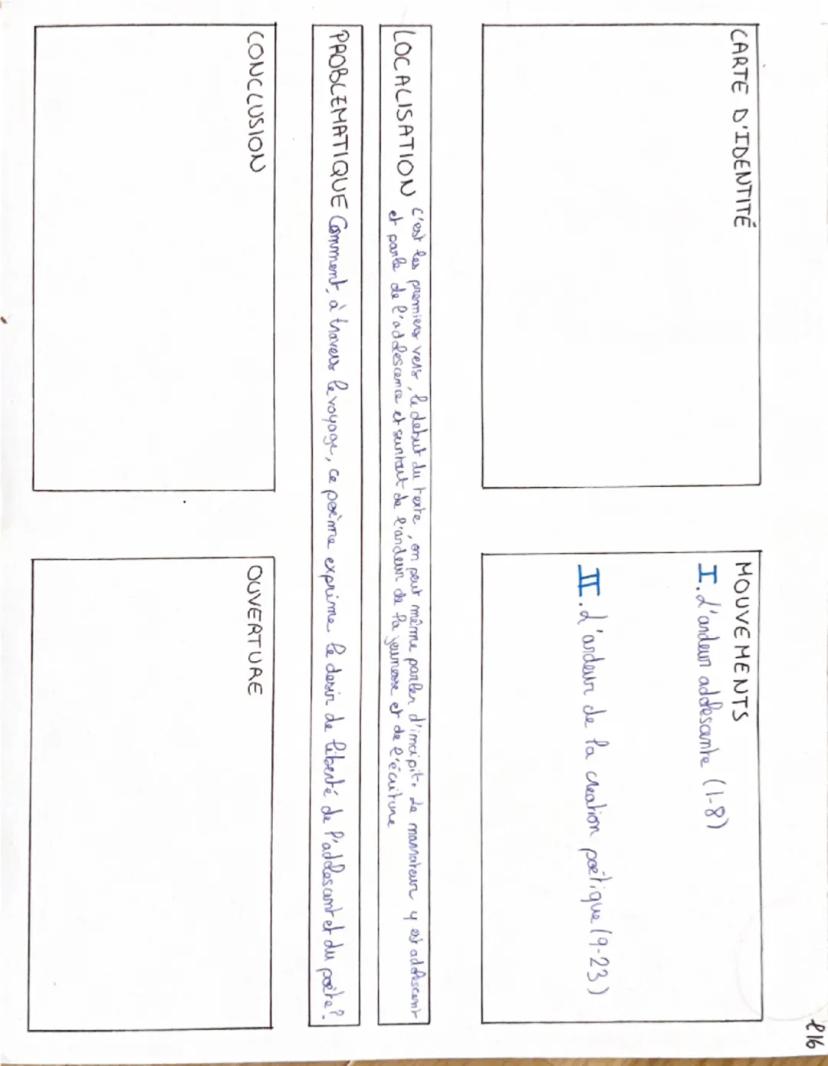 l16
CARTE D'IDENTITÉ
MOUVEMENTS
I. L'ardeur addescante (1-8)
II. L'ardeur de la creation poétique (9-23)
LOCALISATION C'est les premiers vers, le debut du texte, on peut même parler d'incipit. Le narrateur y est addescent
et parle de l'addescence et surtout de l'ardeur de la jeunesse et de l'écriture
PROBLEMATIQUE Comment, à travers le voyage, ce poème exprime le desir de liberté de l'addescent et du poète?
CONCLUSION
OUVERTURE